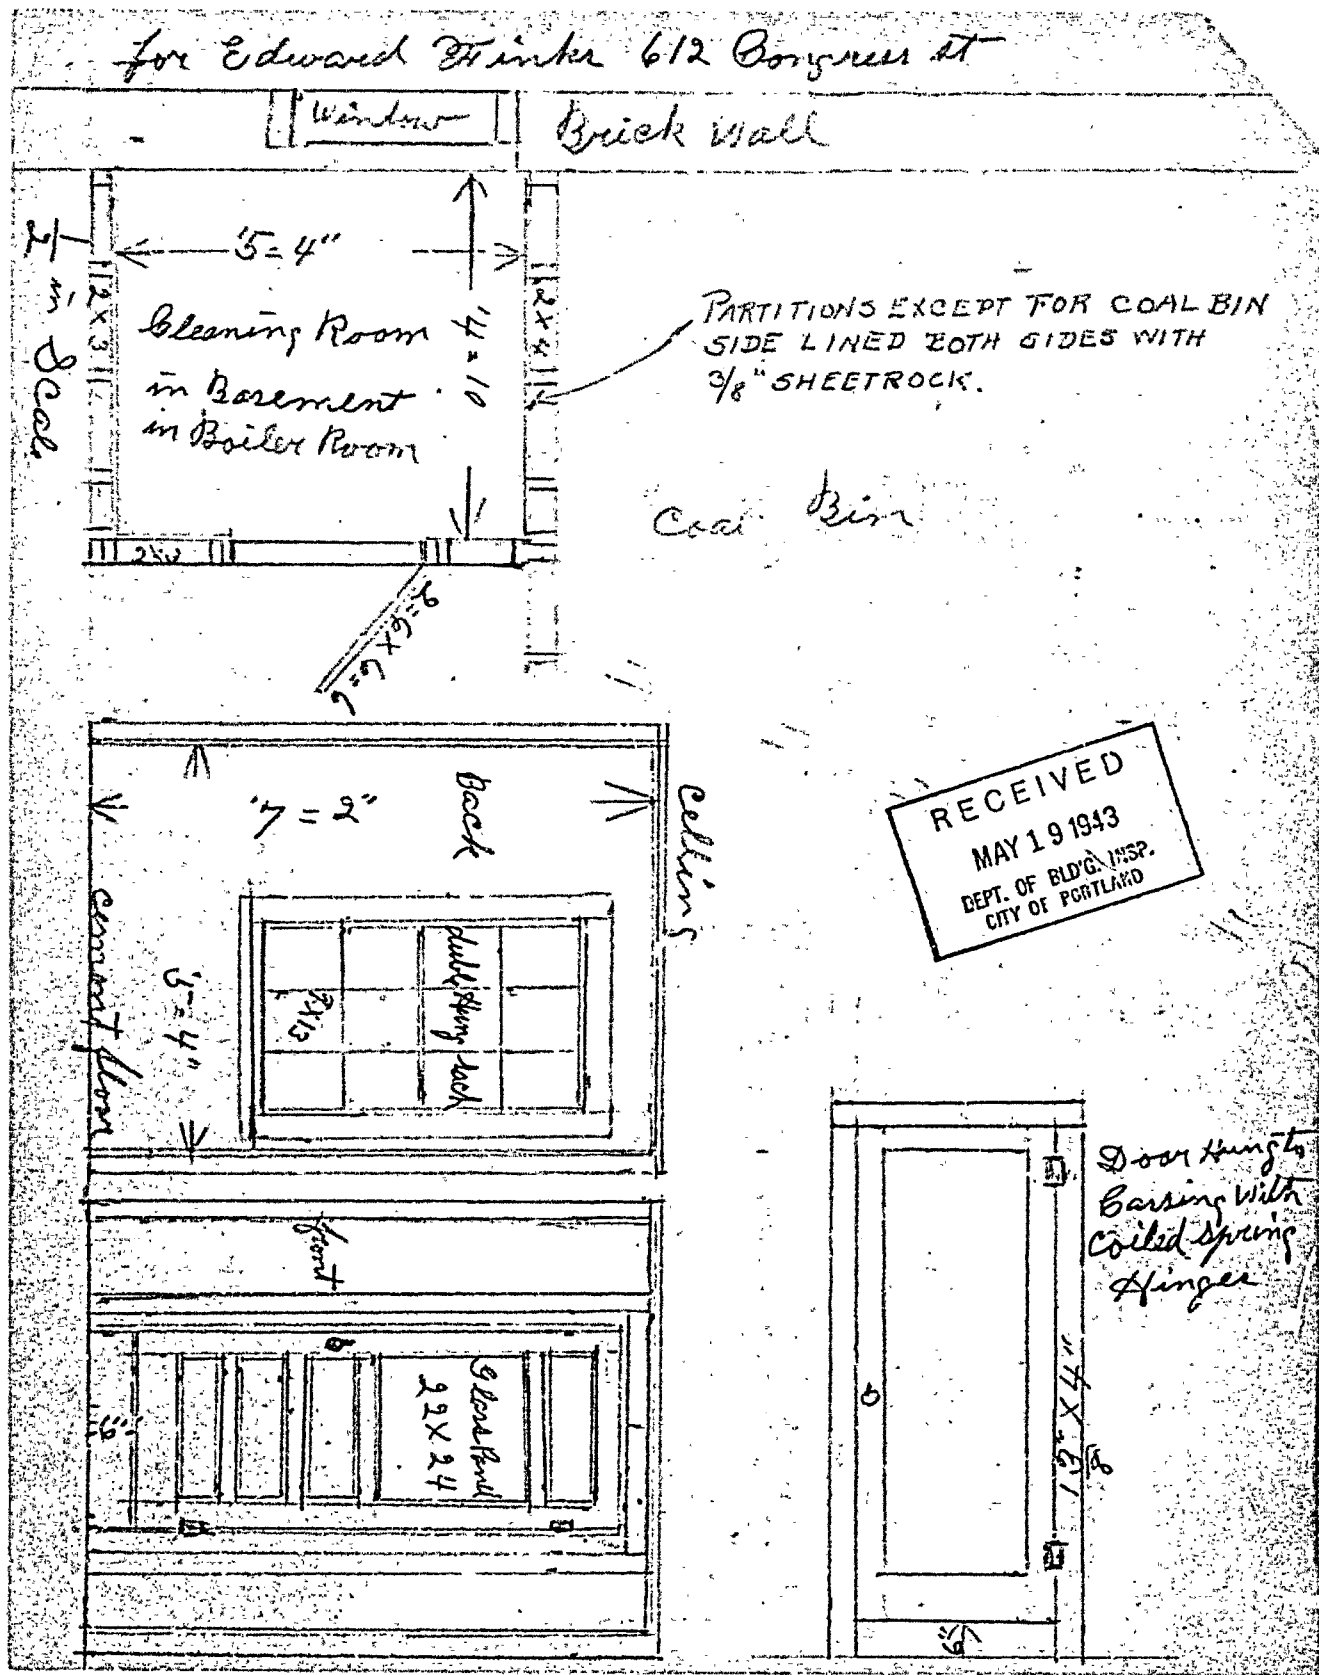 for Edward F Finks 612 Congress st
Window
Brick Wall
1/2 in Scale
'5=4"
2x3
2x4
'4=10
Cleaning Room
in Basement
in Boiler Room
PARTITIONS EXCEPT FOR COAL BIN
SIDE LINED BOTH SIDES WITH
3/8" SHEETROCK.
Coal Bin
Back
'7=2"
Ceiling
cement floor
'5=4"
7x13
RECEIVED
MAY 19 1943
DEPT. OF BLD'G. INSP.
CITY OF PORTLAND
front
Glass Panel
22 X 24
Door Hung to
Cassing With
Coiled Spring
Hinges